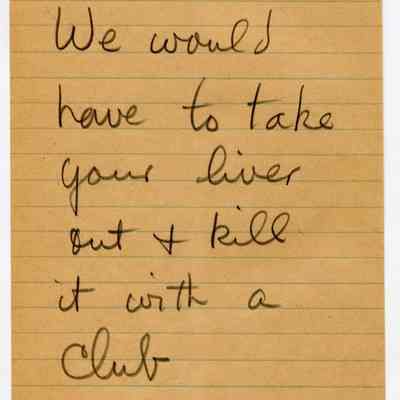 We would
have to take
your liver
out + kill
it with a
Club